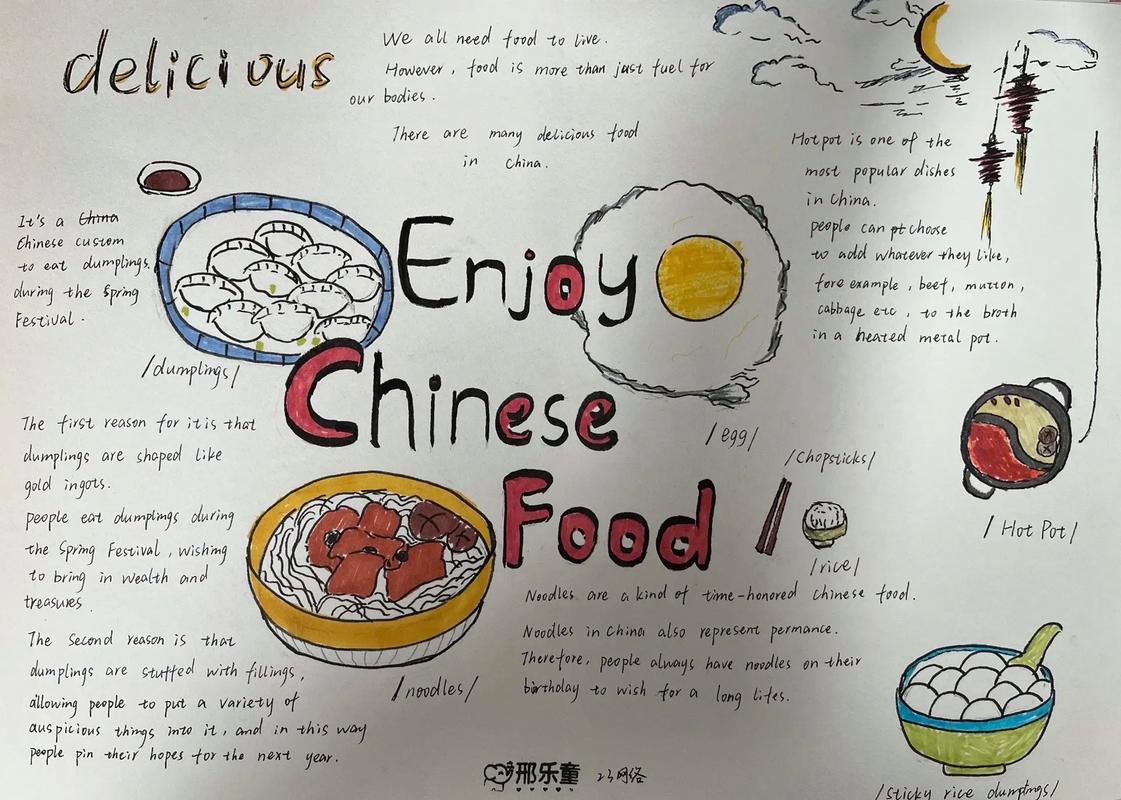 delicious
We all need food to live.
However, food is more than just fuel for
our bodies.
There are many delicious food
in China.
Enjoy
Chinese
Food
It's a China
Chinese custom
to eat dumplings.
during the Spring
Festival.
/dumplings/
The first reason for it is that
dumplings are shaped like
gold ingots.
people eat dumplings during
the Spring Festival, wishing
to bring in wealth and
treasures.
The second reason is that
dumplings are stuffed with fillings,
allowing people to put a variety of
auspicious things into it, and in this way
people pin their hopes for the next year.
/noodles/
/egg/
/Chopsticks/
/rice/
Noodles are a kind of time-honored Chinese food.
Noodles in China also represent permance.
Therefore, people always have noodles on their
birthday to wish for a long lifes.
Hotpot is one of the
most popular dishes
in China.
people can pt choose
to add whatever they like,
fore example, beef, mutton,
cabbage etc, to the broth
in a heated metal pot.
/Hot Pot/
/sticky rice dumplings/
邢乐童 23网络